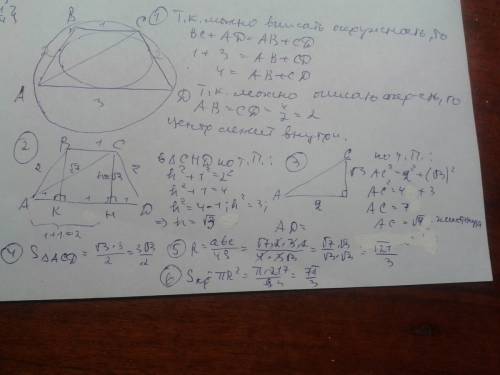 ① Т.к. можно вписать окружность, то
BC + AD = AB + CD
1 + 3 = AB + CD
4 = AB + CD
Т.к. можно описать окр-сть, то
AB = CD = 4/2 = 2
центр лежит внутри.
A
B
C
D
1
2
3
②
B 1 C
2 √7 h=√3 2
A K 1 H 1 D
1+1=2
в △CHD по т. П.:
h² + 1² = 2²
h² + 1 = 4
h² = 4 - 1; h² = 3;
⇒ h = √3
③
C
√3
A 2
AD =
по т. П.:
AC² = 2² + (√3)²
AC² = 4 + 3
AC = 7
AC = √7
④ S△ACD = √3·3/2 = 3√3/2
⑤ R = abc/4S = = √7·√3/√3·√3 = √21/3
⑥ Sкр = πR² = = 7π/3